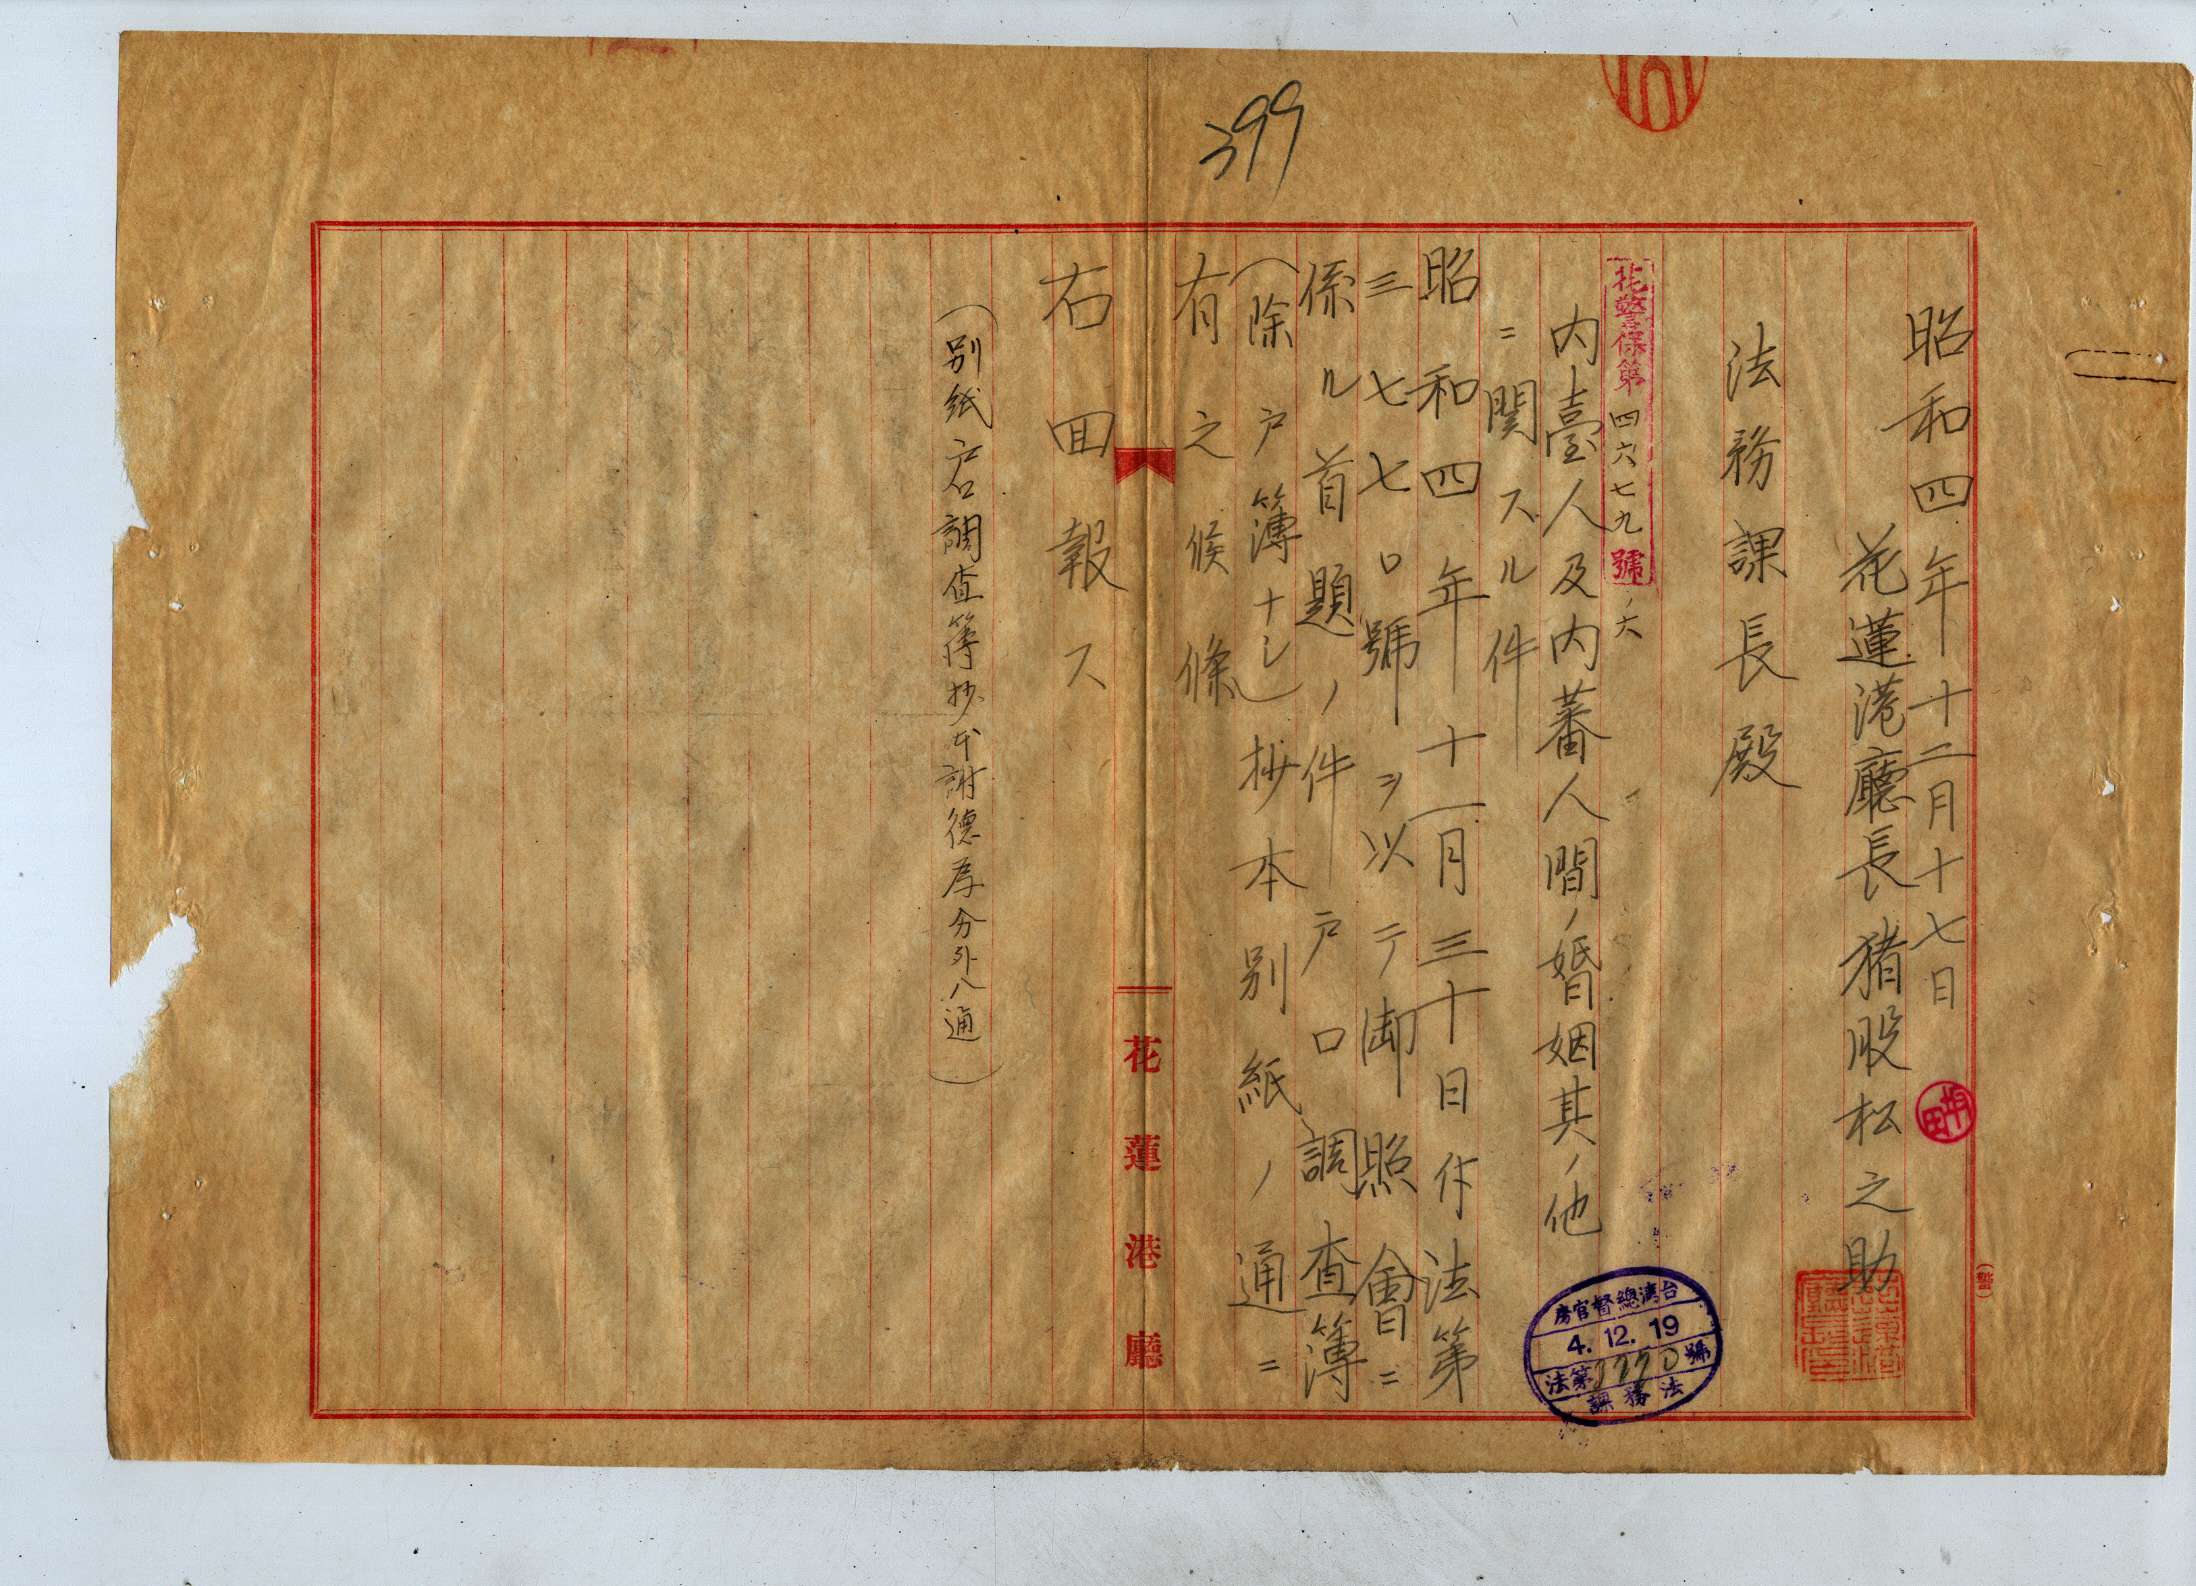 399
昭和四年十二月十七日
花蓮港廳長猪股松之助
法務課長殿
花警保第四六七九號ノ六
內臺人及內蕃人間ノ婚姻其ノ他
ニ関スル件
昭和四年十一月三十日附法第
三七七〇號ヲ以テ御照會ニ
係ル首題ノ件戶口調查簿
(除戶簿ナシ)抄本別紙ノ通ニ
有之候條
右回報ス
(別紙戶口調查簿抄本謝德存分外八通)
花蓮港廳
台湾總督官房
4.12.19
法第3770號
法務課